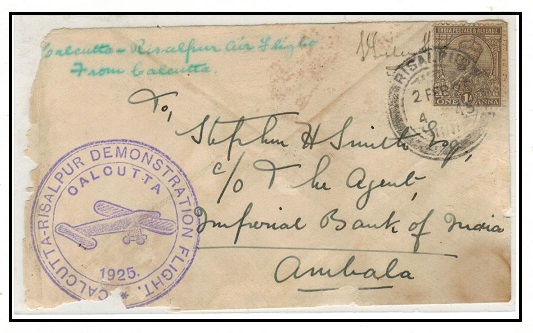 Calcutta - Risalpur Air Flight
From Calcutta.
INDIA POSTAGE & REVENUE
ONE 1A ANNA
RISALPUR
2 FEB
To,
Stephen H Smith Esq,
c/o The Agent,
Imperial Bank of India
Ambala
CALCUTTA-RISALPUR DEMONSTRATION FLIGHT.
CALCUTTA
1925.